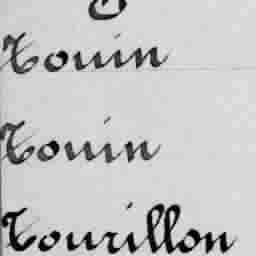 Touin
Touin
Tourillon